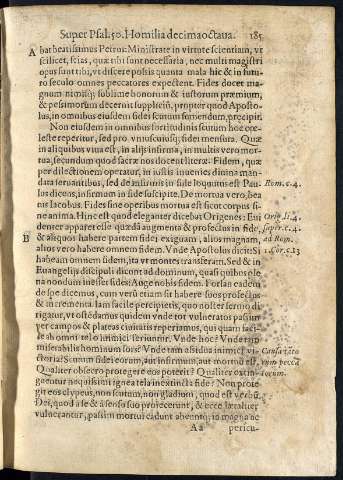 Super Psal. 50. Homilia decimaoctaua. 185
A bat beatissimus Petrus: Ministrate in virtute scientiam, vt
scilicet, scias, quæ tibi sunt necessaria, nec multi magistri
opus sunt tibi, vt discere possis quanta mala hic & in futu
ro seculo omnes peccatores expectent. Fides docet ma-
gnum nimisq; sublime bonorum & iustorum præmium,
& pessimorum decernit supplicium, propter quod Aposto-
lus, in omnibus eiusdem fidei scutum sumendum, præcipit.
Non eiusdem in omnibus fortitudinis scutum hoc cœ-
leste reperitur, sed pro vniuscuiusq; fidei mensura. Quæ
in aliquibus viua est, in alijs infirma, in multis vero mor-
tua, secundum quod sacræ nos docent literæ. Fidem, quæ
per dilectionem operatur, in iustis inuenies diuina man-
data seruantibus, sed de infirmis in fide loquitur est Pau-
lus dicens, infirmum in fide suscipite. De mortua vero, bea
nus Iacobus. Fides sine operibus mortua est sicot corpus si-
ne anima. Hinc est quod eleganter dicebat Origenes: Eui
denter apparet esse quædã augmenta & profectus in fide,
B & aliquos habere partem fidei exiguam, alios magnam,
alios vero habere omnem fidem. Vnde Apostolus dicit: Si
habeam omnem fidem, ita vt montes transferam. Sed & in
Euangelijs discipuli dicunt ad dominum, quasi quibus ple
na nondum inesset fides: Auge nobis fidem. Forsan eadem
de spe dicemus, cum verũ etiam sit habere suos profectus
& in crementa. Iam facile percipietis, quo noster sermo di
rigatur, vt ostẽdamus quidem vnde tot vulneratos passim
per campos & plateas ciuitatis reperiamus, qui quam faci
le ab omni telo inimici feriuntur. Vnde hoc? Vnde tam
miserabilis hominum sors? Vnde tam assidua inimici vi-
ctoria? Scutum fidei eorum, aut infirmum, aut mortuũ est.
Qualiter obsecro protegere eos poterit? Qualiter extin-
guentur nequissimi ignea tela inextincta fide? Non prote
git eos clypeus, non scutum, non gladium, quod est verbũ
Dei, quod à se & à sensu suo proiecerunt, & ecce lætaliter
vulnerantur, passim mortui cadunt abeuntq; in magna ac
Aa pericu-
Rom. c. 4.
Orig. li. 4.
super. c. 4.
ad Rom.
1. Cor. c. 13
Causa tãto
rum pecca
torum.